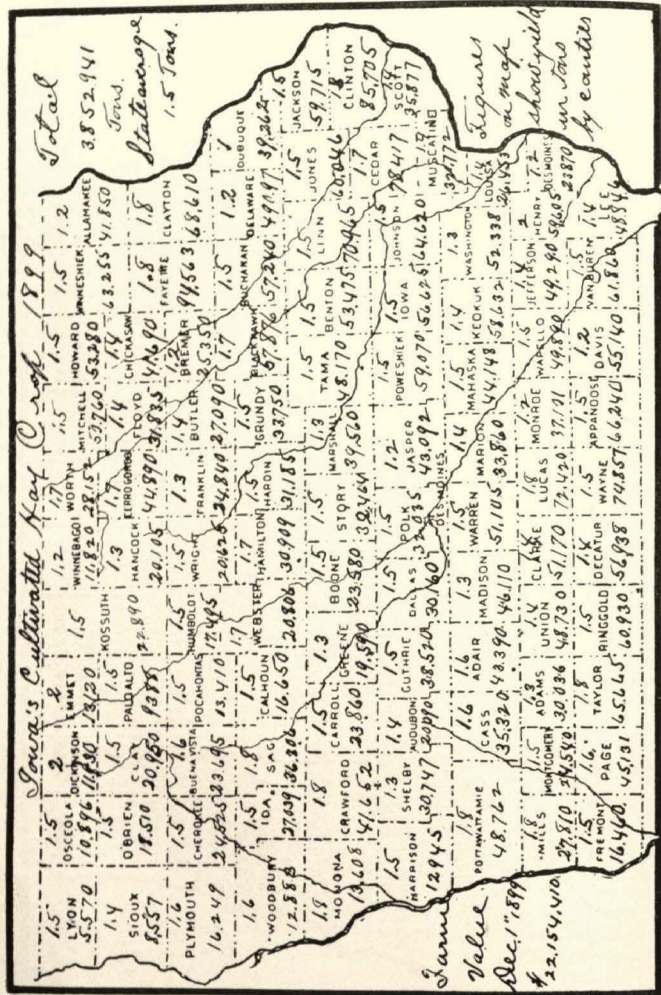 Iowa's Cultivated Hay Crop 1899
Total
3.852941
Tons.
State average
1.5 Tons.
1.5 LYON 5.570
1.5 OSCEOLA 10.896
2 DICKINSON
2 EMMET 13,120
1.5 KOSSUTH 22.890
1.2 WINNEBAGO 11,820
1.7 WORTH 28,152
1.5 MITCHELL
1.5 HOWARD 53,280
1.5 WINNESHIEK 63.255
1.2 ALLAMAKEE 41.850
1.4 SIOUX 8,557
1.5 O'BRIEN 18.510
1.5 CLAY 20,950
1.5 PALO ALTO
1.3 HANCOCK 20,105
1.7 CERRO GORDO 44,890
1.4 FLOYD 31,835
1.4 CHICKASAW 41,690
1.8 FAYETTE 94,563
1.8 CLAYTON 68,610
1.6 PLYMOUTH 16,249
1.5 CHEROKEE 24,525
1.6 BUENA VISTA 23,695
1.5 POCAHONTAS 13,410
1.5 HUMBOLDT 17,495
1.5 WRIGHT 20,625
1.3 FRANKLIN 24,840
1.4 BUTLER 27,090
1.2 BREMER 25,350
1.6 WOODBURY
1.5 IDA 27,039
1.8 SAC
1.5 CALHOUN 16,650
1.7 WEBSTER 20,806
1.7 HAMILTON 30,909
1.5 HARDIN 31,185
1.5 GRUNDY 33,750
1.7 BLACKHAWK
1.5 BUCHANAN 57,240
1.2 DELAWARE
1 DUBUQUE 39,262
1.8 MONONA 13,608
1.8 CRAWFORD 41,652
1.5 CARROLL 23,860
1.3 GREENE 19,590
1.5 BOONE 23,580
1.5 STORY
1.3 MARSHALL 39,560
1.5 TAMA 48,170
1.5 BENTON 53,475
1.5 LINN
1.5 JONES 60,046
1.5 JACKSON 59,715
1.8 CLINTON 85,705
1.5 HARRISON 12945
1.3 SHELBY 30,747
1.4 AUDUBON
1.5 GUTHRIE 38,520
1.5 DALLAS 30,160
1.5 POLK 32,035
DES MOINES
1.2 JASPER 43,092
1.5 POWESHIEK 59,070
1.5 IOWA 56,625
1.5 JOHNSON 64,620
1.7 CEDAR 78,417
1.4 SCOTT 35,877
MUSCATINE
1.8 POTTAWATTAMIE 48.762
1.6 CASS 35,320
1.6 ADAIR 43,390
1.3 MADISON 46,110
1.5 WARREN 51,105
1.4 MARION 33,860
1.5 MAHASKA 44,148
1.4 KEOKUK 58,632
1.3 WASHINGTON 52,338
1.4 LOUISA
1.8 MILLS 27,810
1.5 MONTGOMERY
1.3 ADAMS 30,036
1.4 UNION 48,730
CLARKE 51,170
1.8 LUCAS 72,420
1.2 MONROE 37,191
1.5 WAPELLO 49,890
1.4 JEFFERSON 49,290
2 HENRY 59,605
1.2 DESMOINES 23870
1.5 FREMONT
1.6 PAGE 45,131
TAYLOR 65,665
1.5 RINGGOLD 60,930
1.4 DECATUR 56,938
1.5 WAYNE 74,857
1.5 APPANOOSE 66,240
1.2 DAVIS 55,140
1.5 VAN BUREN 61,860
1.4 LEE 48,546
Farm
Value
Dec. 1" 1899
$22,154,410
Figures
on map
show yield
in tons
by counties